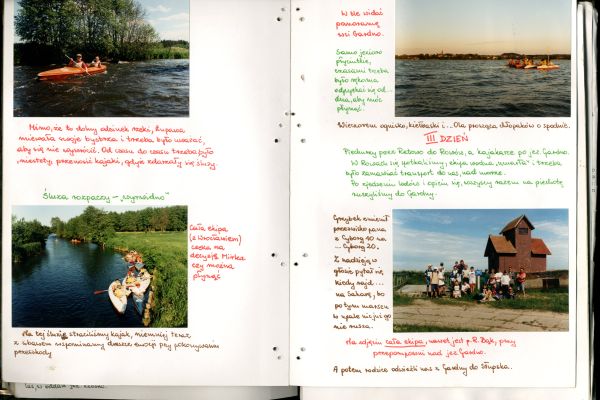 Mimo, że to dolny odcinek rzeki, Łupawa
miewała swoje bystrza i trzeba było uważać,
aby się nie wywrócić. Od czasu do czasu trzeba było
, niestety, przenosić kajaki, gdyż zdarzały się śluzy
Śluza rozpaczy -
Cała ekipa
(z Wrocławiem)
czeka na
decyzję Mirka
czy można
płynąć
Na tej śluzie straciliśmy kajak, niemniej teraz
z ubawem wspominamy dreszcz emocji przy pokonywaniu
przeszkody
W tle widać
panoramę
wsi Gardno.
Samo jezioro
płyciutkie,
czasami trzeba
było rękoma
odpychać się od...
dna, aby móc
płynąć!
Wieczorem ognisko, kiełbaski i... Ola prosząca chłopaków o spodnie.
III DZIEŃ
Piechurzy przez Retowo do Rowów, a kajakarze po jez. Gardno.
W Rowach się spotkaliśmy, ekipa wodna "umarła" i trzeba
było zamawiać transport do nas, nad morze.
Po zjedzeniu lodów i opiciu się, wszyscy razem na piechotę
ruszyliśmy do Gardny.
Grzybek zmienił
przezwisko pana
z Cyborg 40 na
... Cyborg 20.
Z nadzieją w
głosie pytał się,
kiedy rajd...
na Saharę, bo
po tym marszu
w upale nic już go
nie rusza.
Na zdjęciu cała ekipa, nawet jest p. R. Bąk, przy
przepompowni nad jez. Gardno.
A potem rodzice odwieźli nas z Gardny do Słupska..